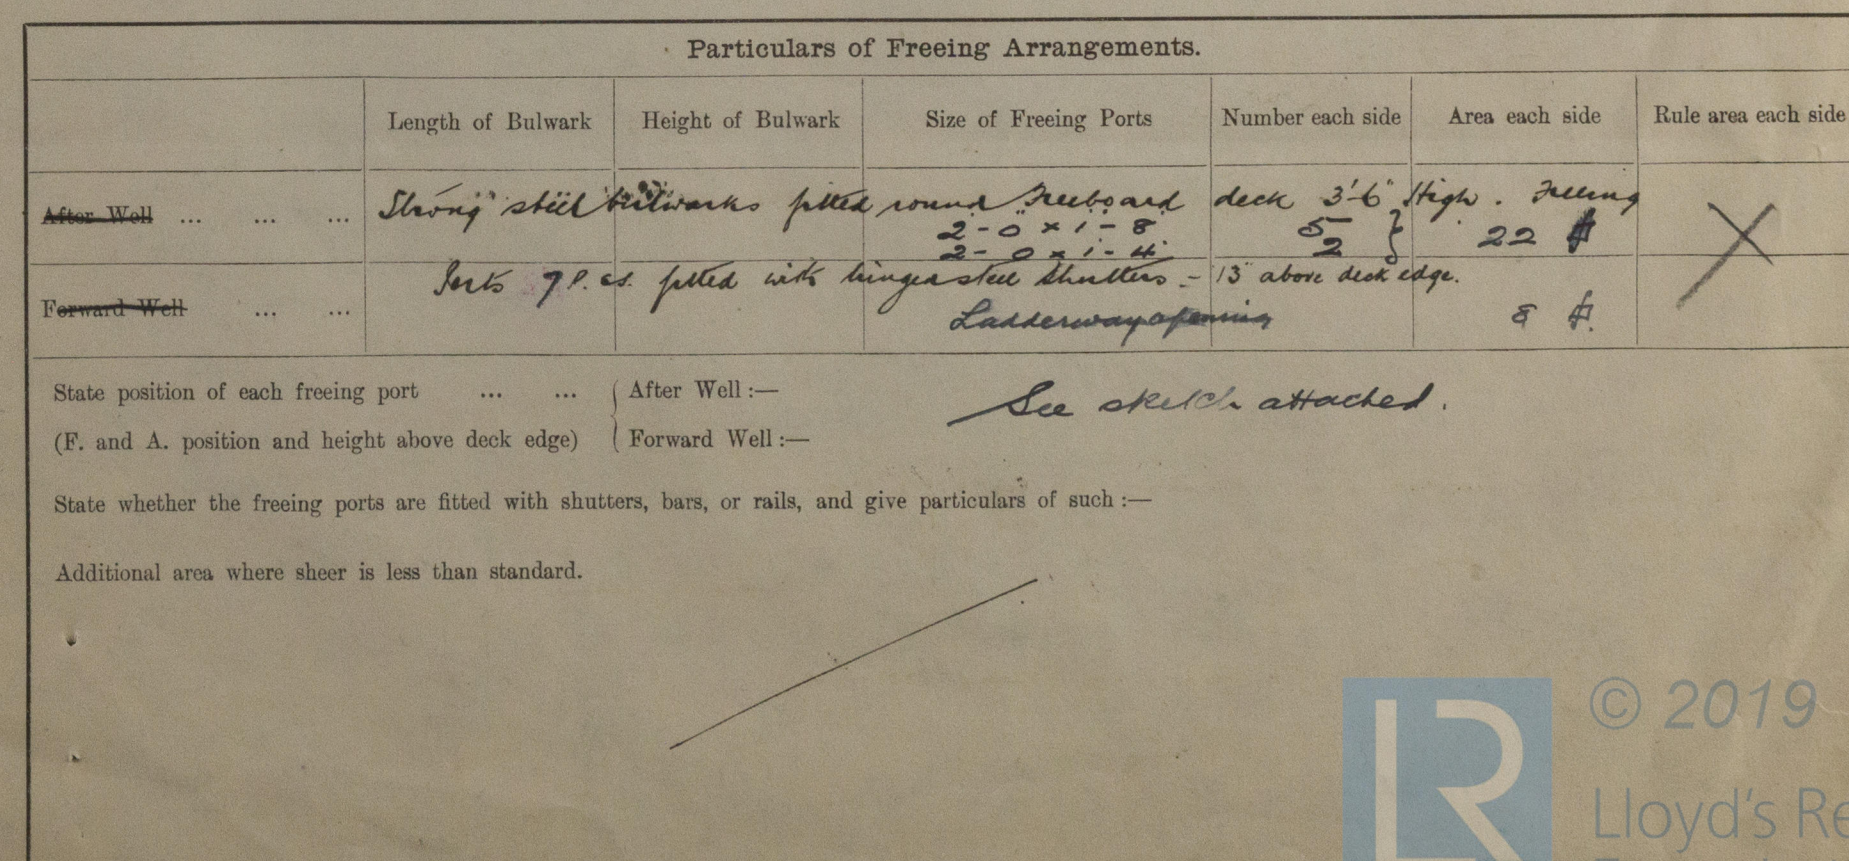 Particulars of Freeing Arrangements.
Length of Bulwark Height of Bulwark Size of Freeing Ports Number each side Area each side Rule area each side
After Well ... ... ... Strong steel bulwarks fitted round Freeboard deck 3'-6" High. Freeing
2-0 x 1-8 5 } 22 ft
2-0 x 1-4 2
Ports 7 P. & S. fitted with hinged steel shutters - 13" above deck edge.
Forward Well ... ... Ladderway opening 8 ft.
State position of each freeing port ... ... { After Well :— See sketch attached.
(F. and A. position and height above deck edge) Forward Well :—
State whether the freeing ports are fitted with shutters, bars, or rails, and give particulars of such :—
Additional area where sheer is less than standard.
LR
© 2019
Lloyd's Re